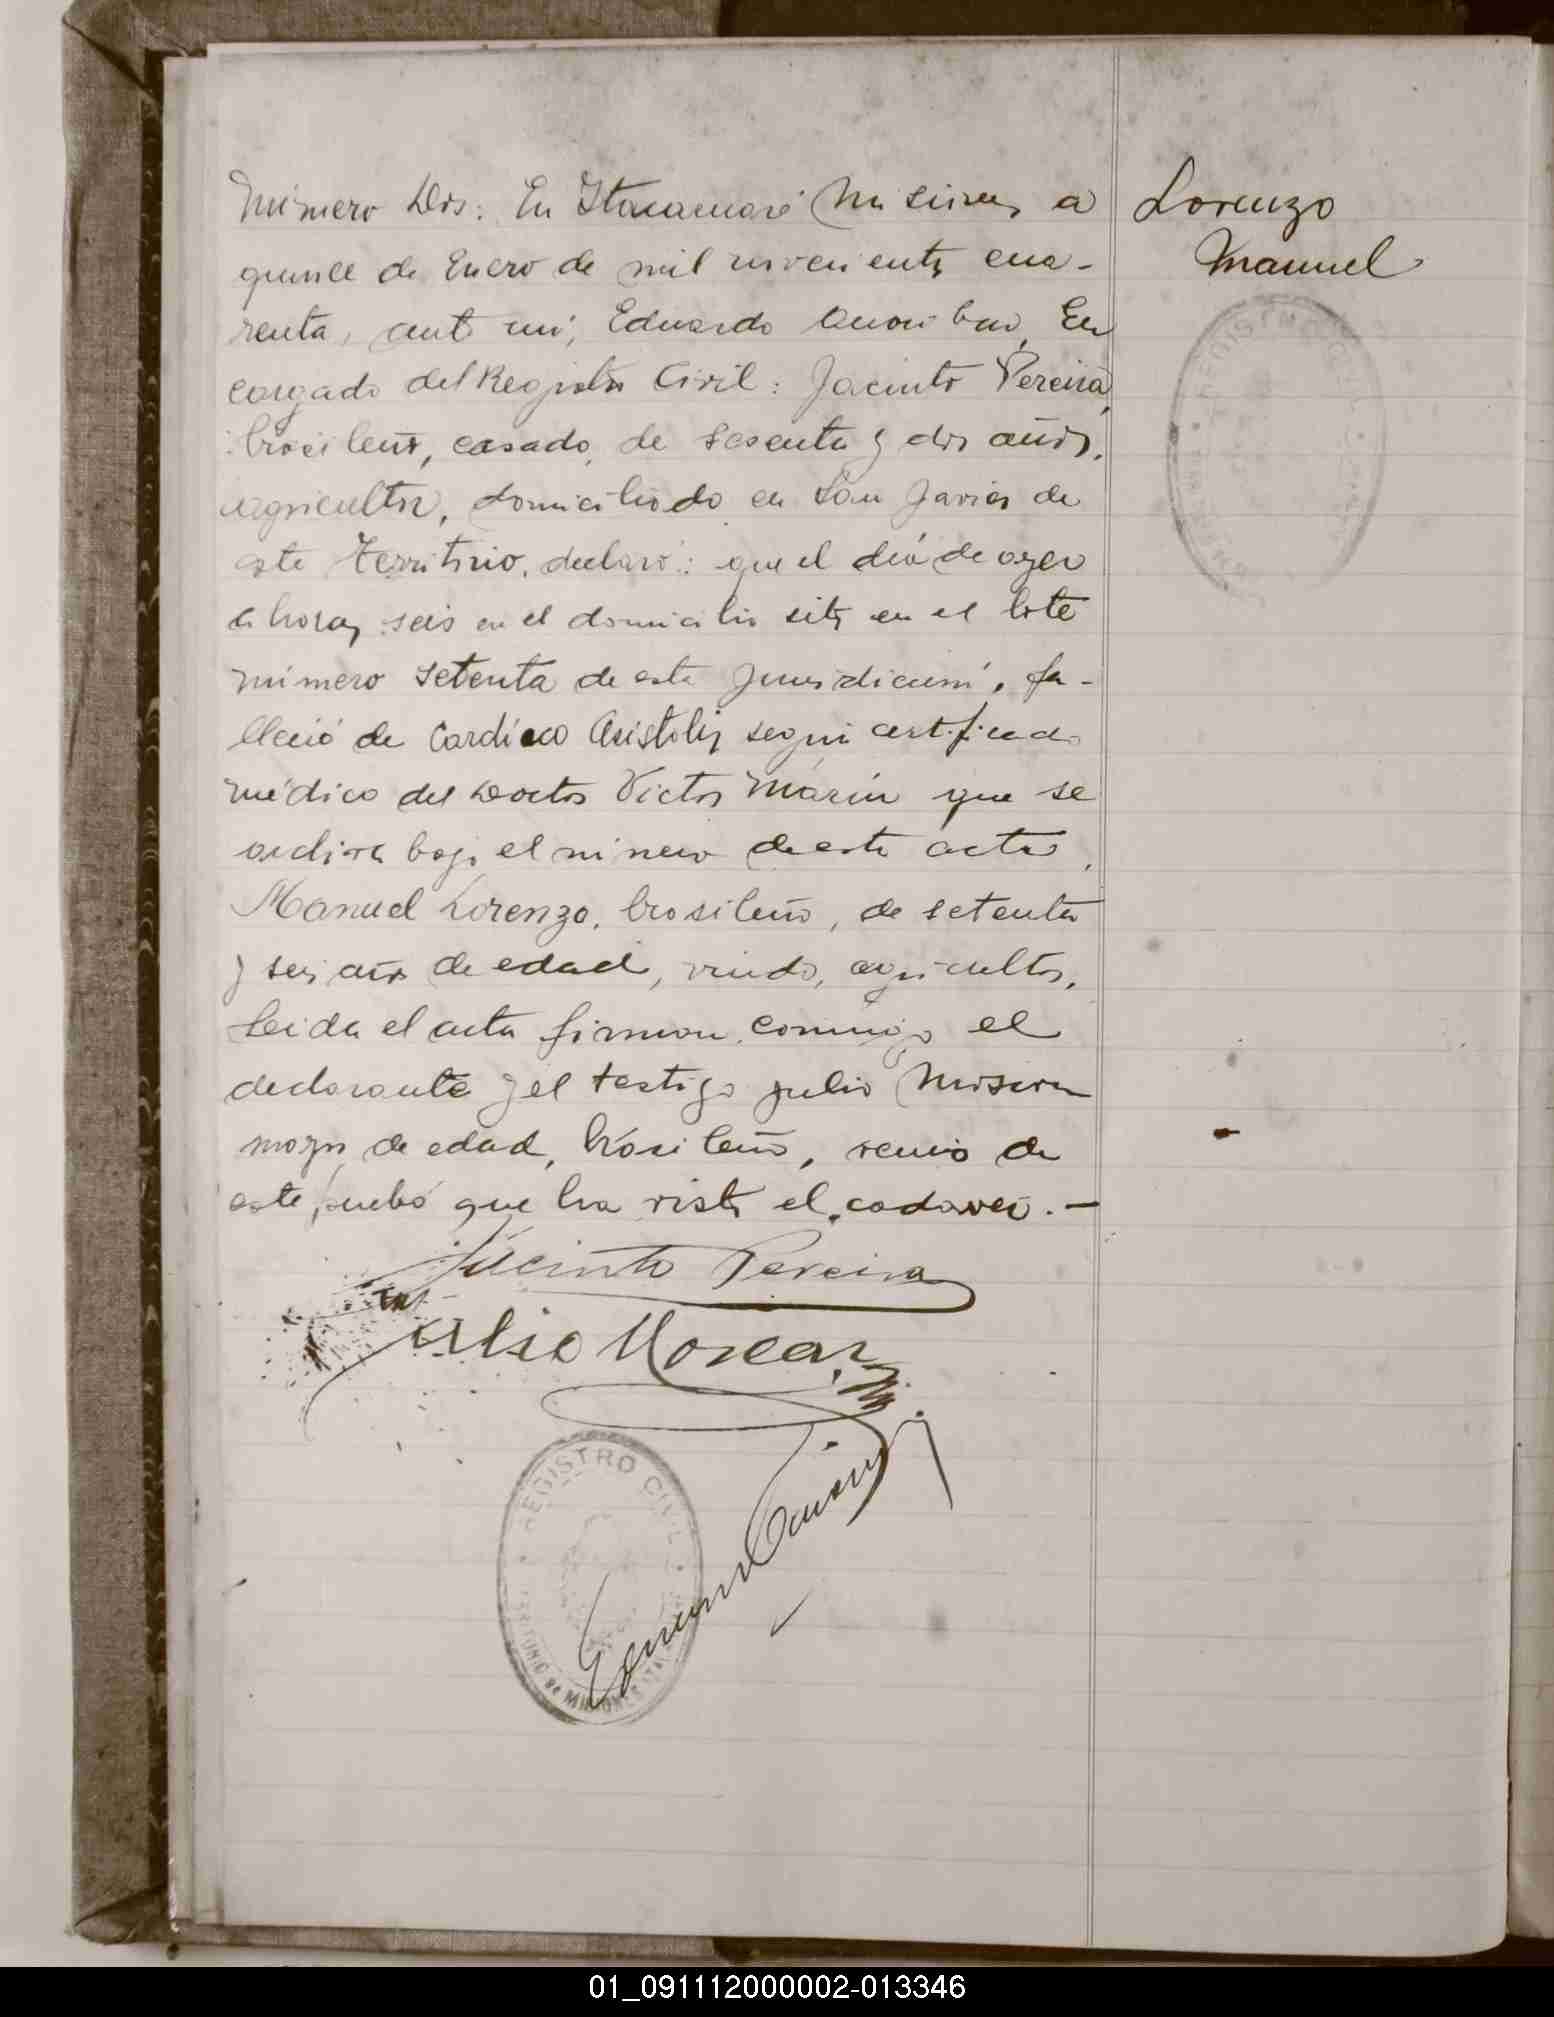 Número Dos: En Itacaruaré Misiones a
quince de Enero de mil novecientos cua-
renta, ante mi, Eduardo En
cargado del Registro Civil: Jacinto Pereira,
brasileño, casado, de sesenta y dos años,
agricultor, domiciliado en San Javier de
este Territorio, declaró: que el día de ayer
a horas seis en el domicilio sito en el lote
número setenta de esta jurisdicción, fa-
lleció de Cardíaco Asistolia según certificado
médico del Doctor Victor Marín que se
archiva bajo el número de esta acta,
Manuel Lorenzo, brasileño, de setenta
y seis años de edad, viudo, agricultor,
Leida el acta firman conmigo el
declarante y el testigo Julio
mayor de edad, brasileño, vecino de
este pueblo que ha visto el cadaver. —
Jacinto Pereira
Julio
REGISTRO CIVIL
TERRITORIO DE MISIONES
Lorenzo
Manuel
REGISTRO CIVIL
01_091112000002-013346